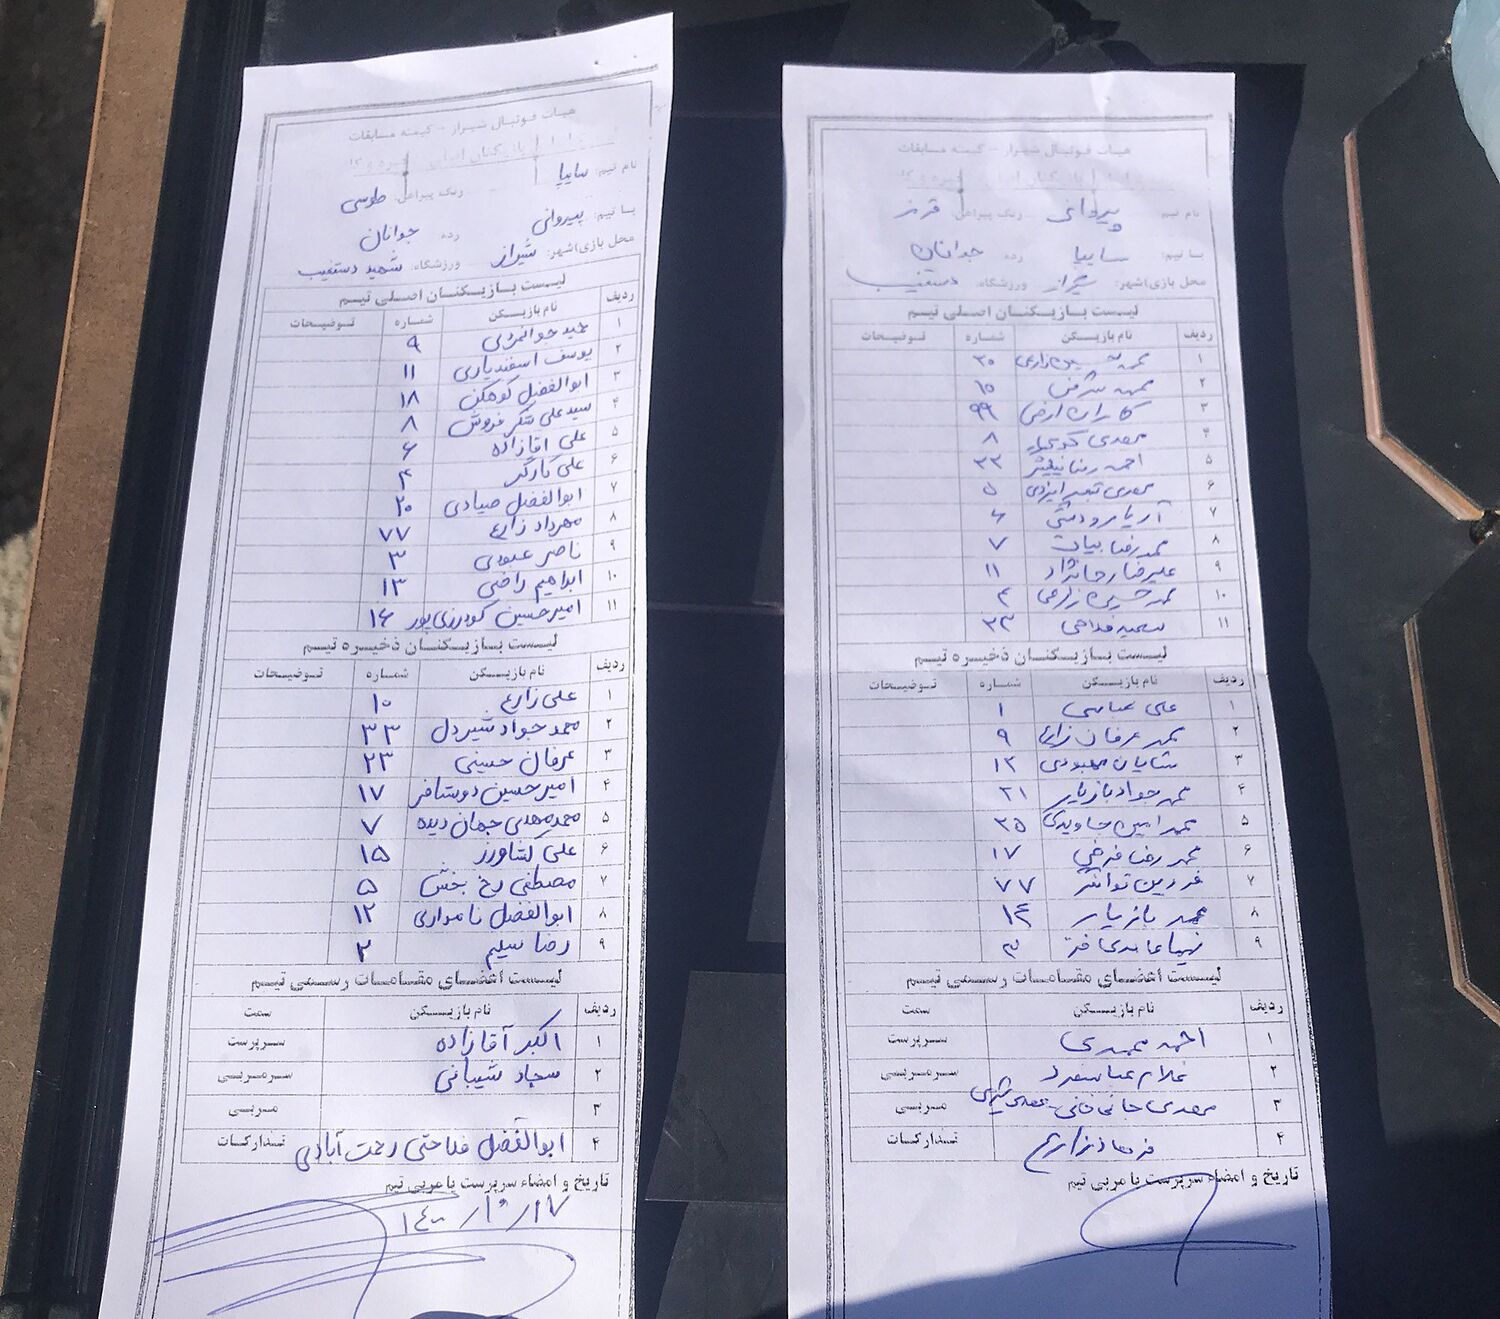 هیات فوتبال شیراز - کمیته مسابقات
نام تیم: سایپا رنگ پیراهن: طوسی
با تیم: پیروانی رده جوانان
محل بازی)شهر: شیراز ورزشگاه: شهید دستغیب
لیست بازیکنان اصلی تیم
ردیف نام بازیکن شماره توضیحات
۱ حمید جوانمردی ۹
۲ یوسف اسفندیاری ۱۱
۳ ابوالفضل کوهکن ۱۸
۴ سید علی شکر فروش ۸
۵ علی آقازاده ۶
۶ علی کارگر ۴
۷ ابوالفضل صیادی ۲۰
۸ مهرداد زارع ۷۷
۹ ناصر عبودی ۳
۱۰ ابراهیم راضی ۱۳
۱۱ امیرحسین گودرزی پور ۱۶
لیست بازیکنان ذخیره تیم
ردیف نام بازیکن شماره توضیحات
۱ علی زارع ۱۰
۲ محمد جواد شیردل ۳۳
۳ عرفان حسینی ۲۳
۴ امیرحسین ۱۷
۵ محمدمهدی جهان دیده ۷
۶ علی کشاورز ۱۵
۷ مصطفی رخ بخش ۵
۸ ابوالفضل نامداری ۱۲
۹ رضا سلیم ۲
لیست اعضای مقامات رسمی تیم
ردیف نام بازیکن سمت
۱ اکبر آقازاده سرپرست
۲ سجاد شیبانی سرمربی
۳ مربی
۴ ابوالفضل فلاحتی رحمت آبادی تدارکات
تاریخ و امضاء سرپرست یا مربی تیم
هیات فوتبال شیراز - کمیته مسابقات
نام تیم پیروانی رنگ پیراهن: قرمز
با تیم: سایپا رده جوانان
محل بازی)شهر: شیراز ورزشگاه: دستغیب
لیست بازیکنان اصلی تیم
ردیف نام بازیکن شماره توضیحات
۱ محمد ۳۰
۲ محمد شرفی ۱۵
۳ کامران ۹۹
۴ مهدی ۸
۵ احمد رضا ۲۲
۶ مهدی ۵
۷ آریا مرودشتی ۶
۸ محمدرضا بیات ۷
۹ علیرضا رجانژاد ۱۱
۱۰ محمد حسین زارعی ۴
۱۱ سعید فداحی ۳۳
لیست بازیکنان ذخیره تیم
ردیف نام بازیکن شماره توضیحات
۱ علی عباسی ۱
۲ محمد عرفان زارع ۹
۳ شایان بهبودی ۱۲
۴ محمد جواد بازیار ۲۱
۵ محمد امین جاویدی ۲۵
۶ محمد رضا فرخی ۱۷
۷ فردین توانگر ۷۷
۸ محمد بازیار
۹
لیست اعضای مقامات رسمی تیم
ردیف نام بازیکن سمت
۱ احمد محمدی سرپرست
۲ غلام عباسفرد سرمربی
۳ مهدی خانی مربی
۴ فرهاد زارع تدارکات
تاریخ و امضاء سرپرست یا مربی تیم